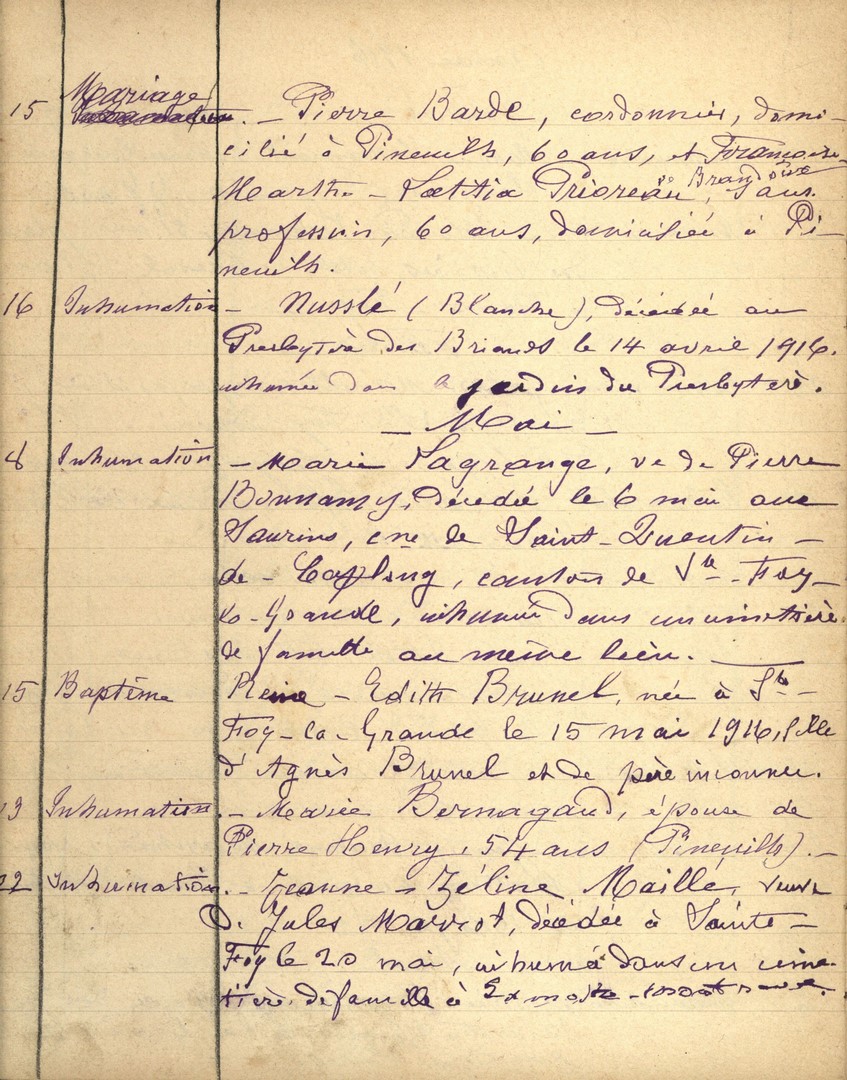 15 Mariage - Pierre Barde, cordonnier, domi-
cilié à Pineuilh, 60 ans, et Françoise-
Brandoire
Marthe - Lætitia Prioreau, sans
profession, 60 ans, domiciliée à Pi-
neuilh.
16 Inhumation - Nusslé (Blanche), décédée au
Presbytère des Briands le 14 avril 1916.
inhumée dans le jardin du Presbytère.
- Mai -
8 Inhumation. - Marie Lagrange, ve de Pierre
Bonnamy, décédée le 6 mai aux
Saurins, cne de Saint-Quentin-
de-Caplong, canton de Ste-Foy-
la-Grande, inhumée dans un cimetière
de famille au même lieu.
15 Baptême Reine-Edith Brunel, née à Ste-
Foy-la-Grande le 15 mai 1916, fille
d'Agnès Brunel et de père inconnu.
Inhumation. - Marie Bernagaud, épouse de
Pierre Henry, 54 ans (Pineuilh). -
22 Inhumation. - Jeanne-Zéline Maillé, veuve
de Jules Marrot, décédée à Sainte-
Foy le 20 mai, inhumé dans un cime-
tière de famille à